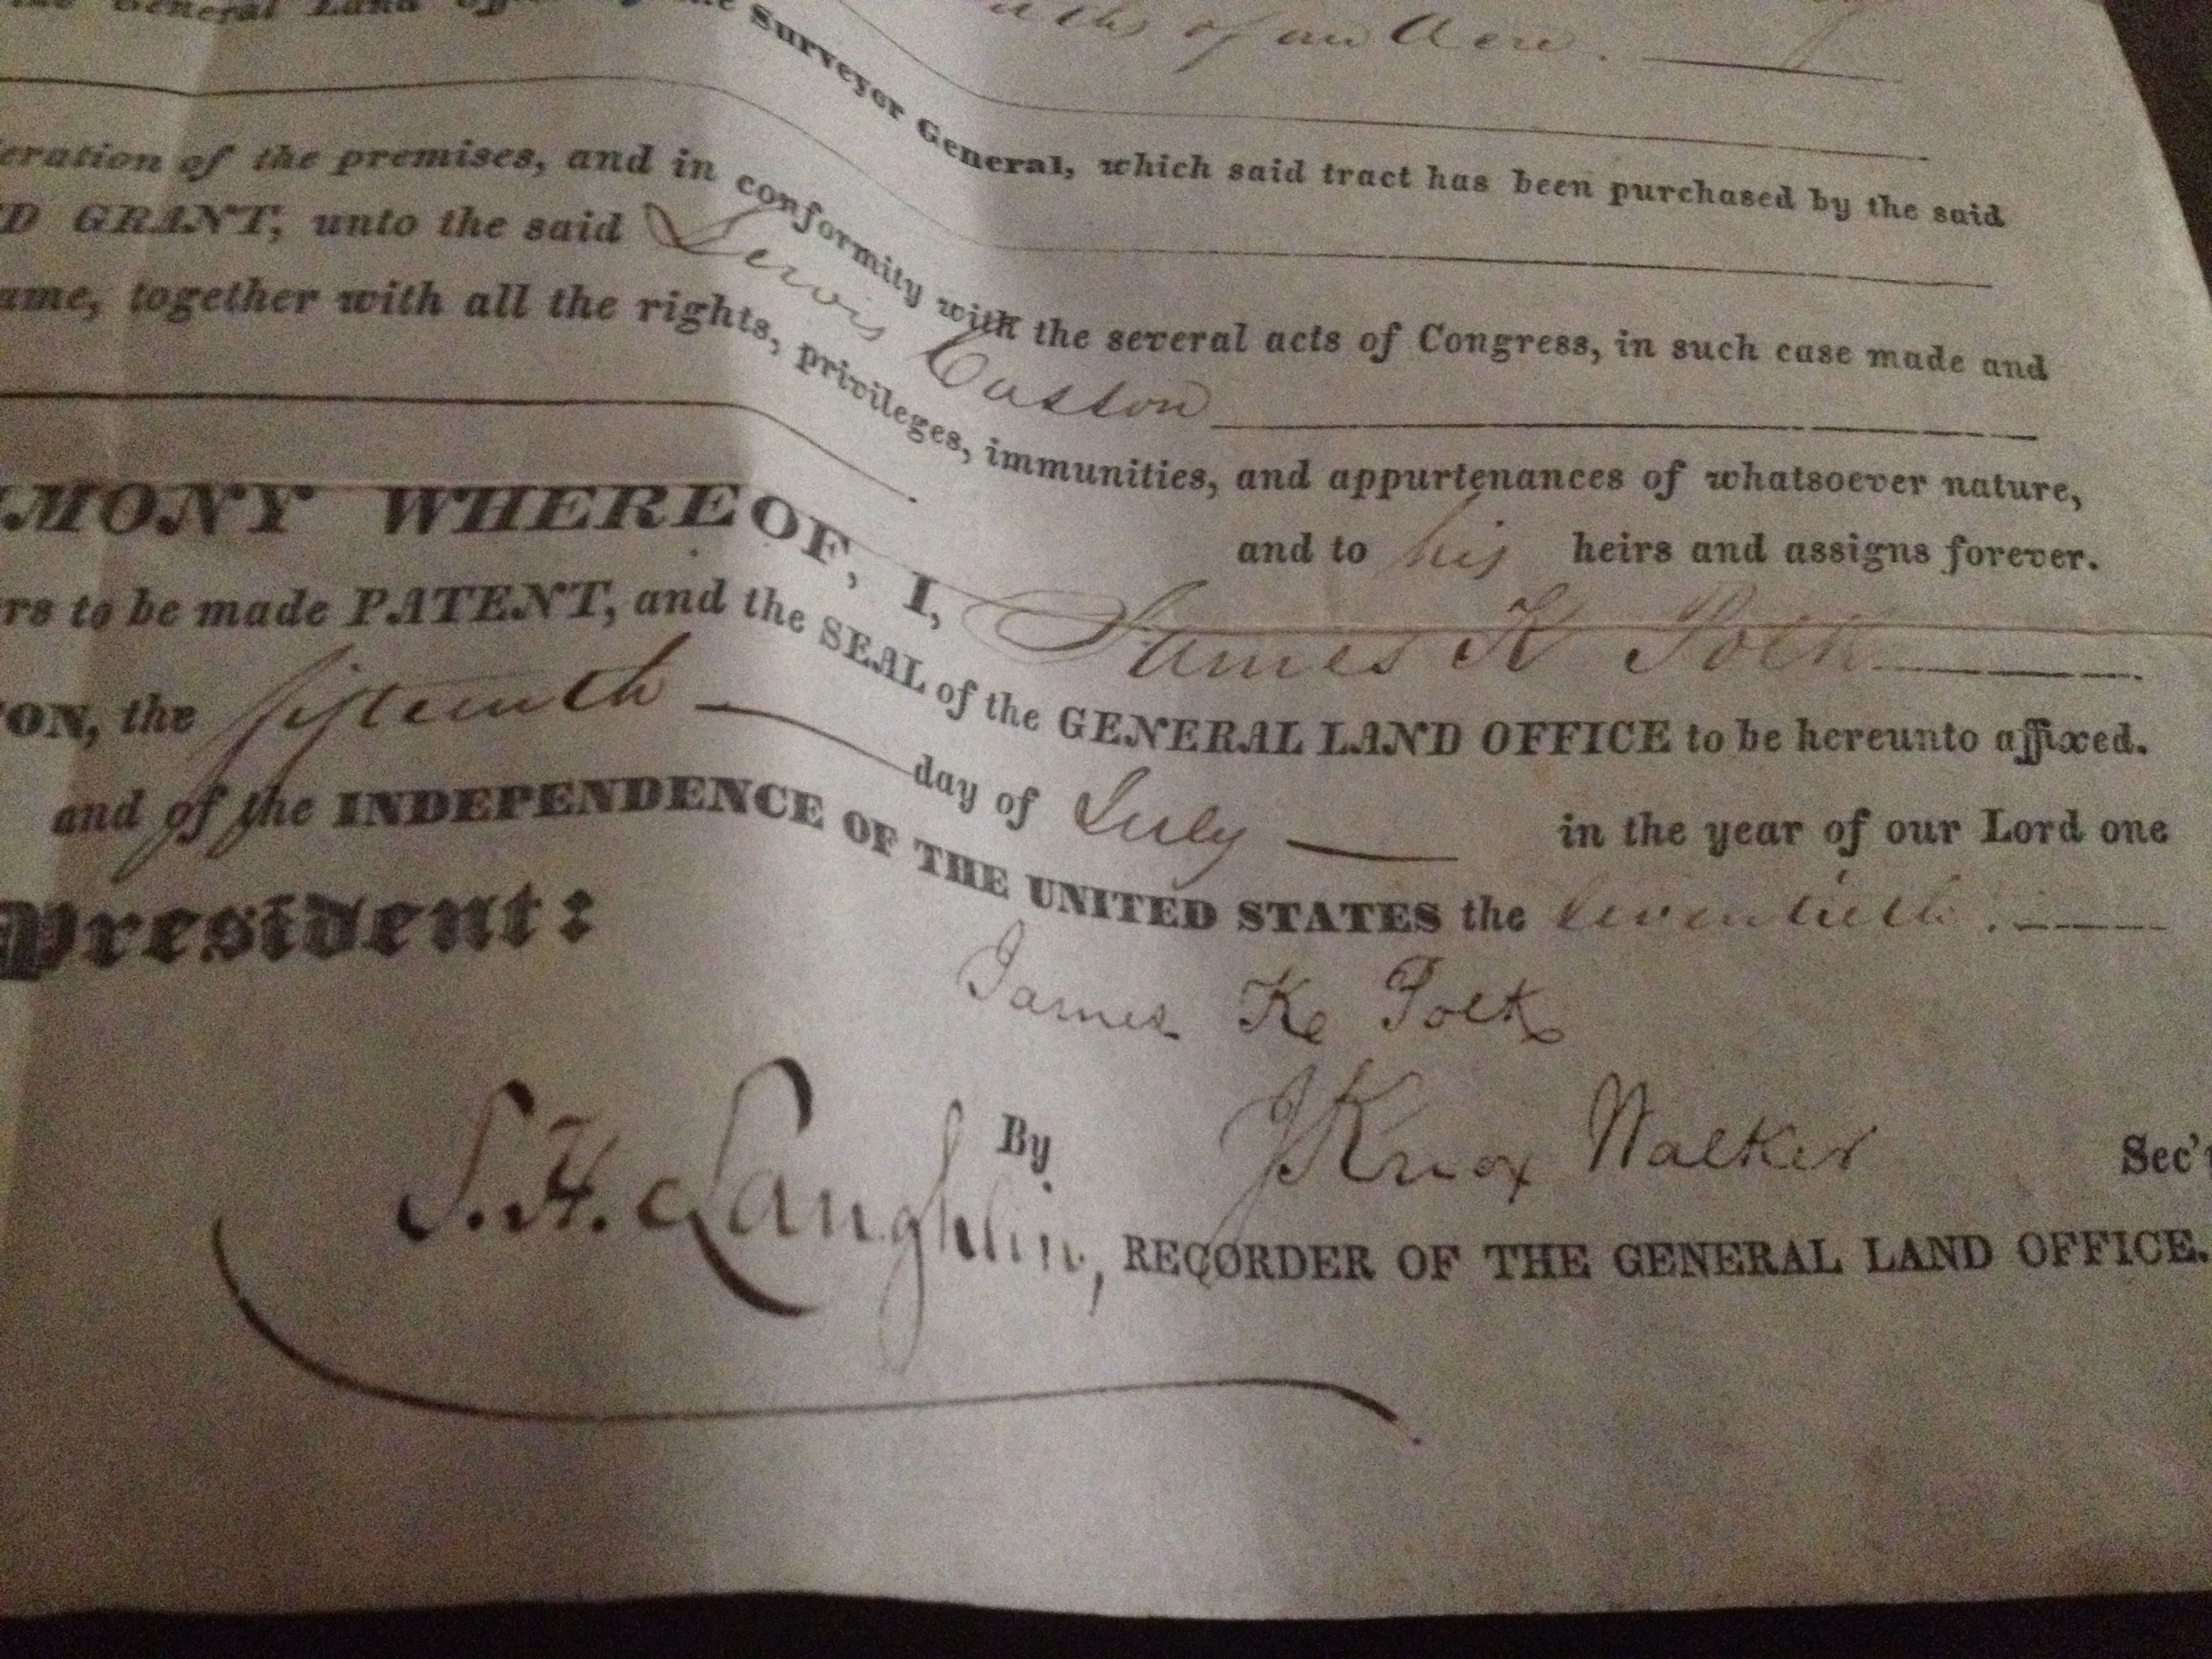 the General Land Office by the Surveyor General, which said tract has been purchased by the said
of an Acre.
eration of the premises, and in conformity with the several acts of Congress, in such case made and
D GRANT, unto the said Lewis Casson
ame, together with all the rights, privileges, immunities, and appurtenances of whatsoever nature,
and to his heirs and assigns forever.
MONY WHEREOF, I, James K Polk
rs to be made PATENT, and the SEAL of the GENERAL LAND OFFICE to be hereunto affixed.
ON, the fifteenth day of July in the year of our Lord one
and of the INDEPENDENCE OF THE UNITED STATES the seventieth.
President: James K Polk
By J Knox Walker Sec'
S. H. Laughlin, RECORDER OF THE GENERAL LAND OFFICE.